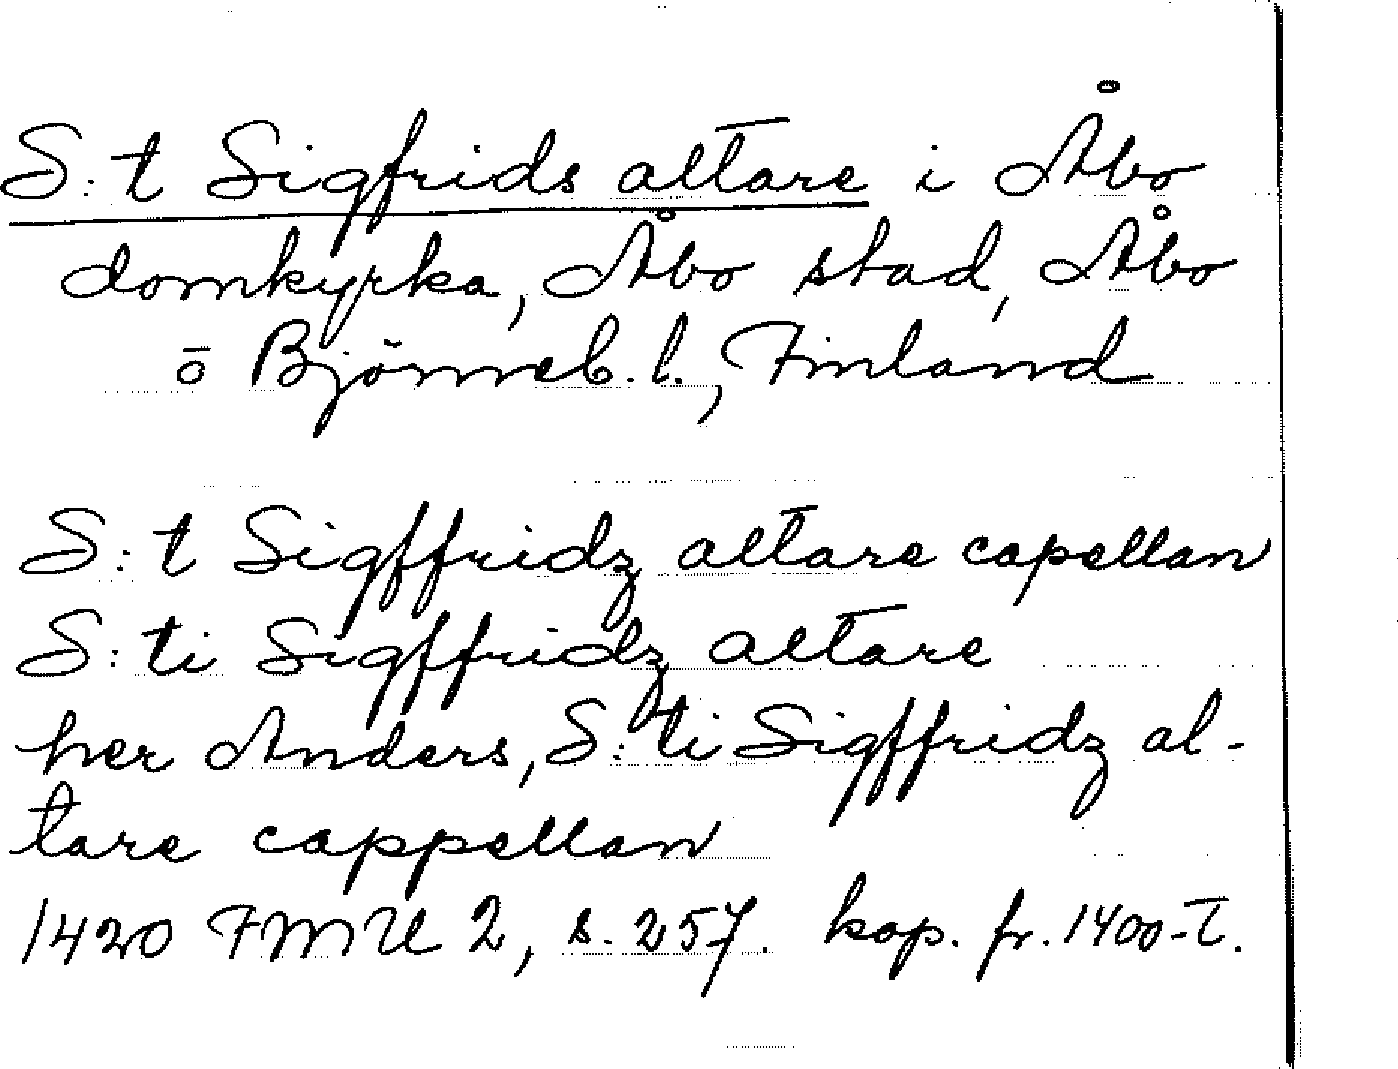 S:t Sigfrids altare i Åbo
domkyrka, Åbo stad, Åbo
o Björneb. l., Finland
S:t Sigffridz altare capellan
S:ti Sigffridz altare
her Anders, S:ti Sigffridz al-
tare cappellan
1420 FMU 2, s. 257. kop. fr. 1400-t.